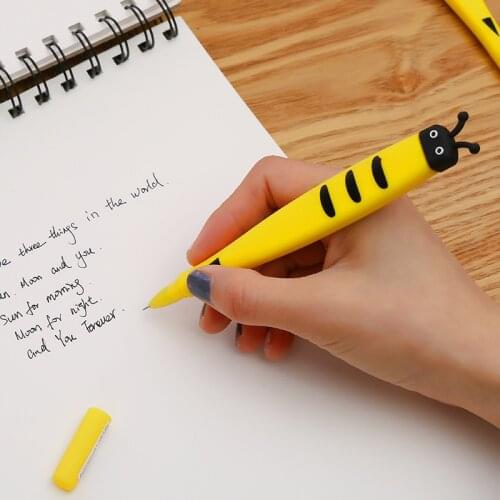 three things in the world.
Moon and you.
Sun for morning.
Moon for night.
and You Forever.